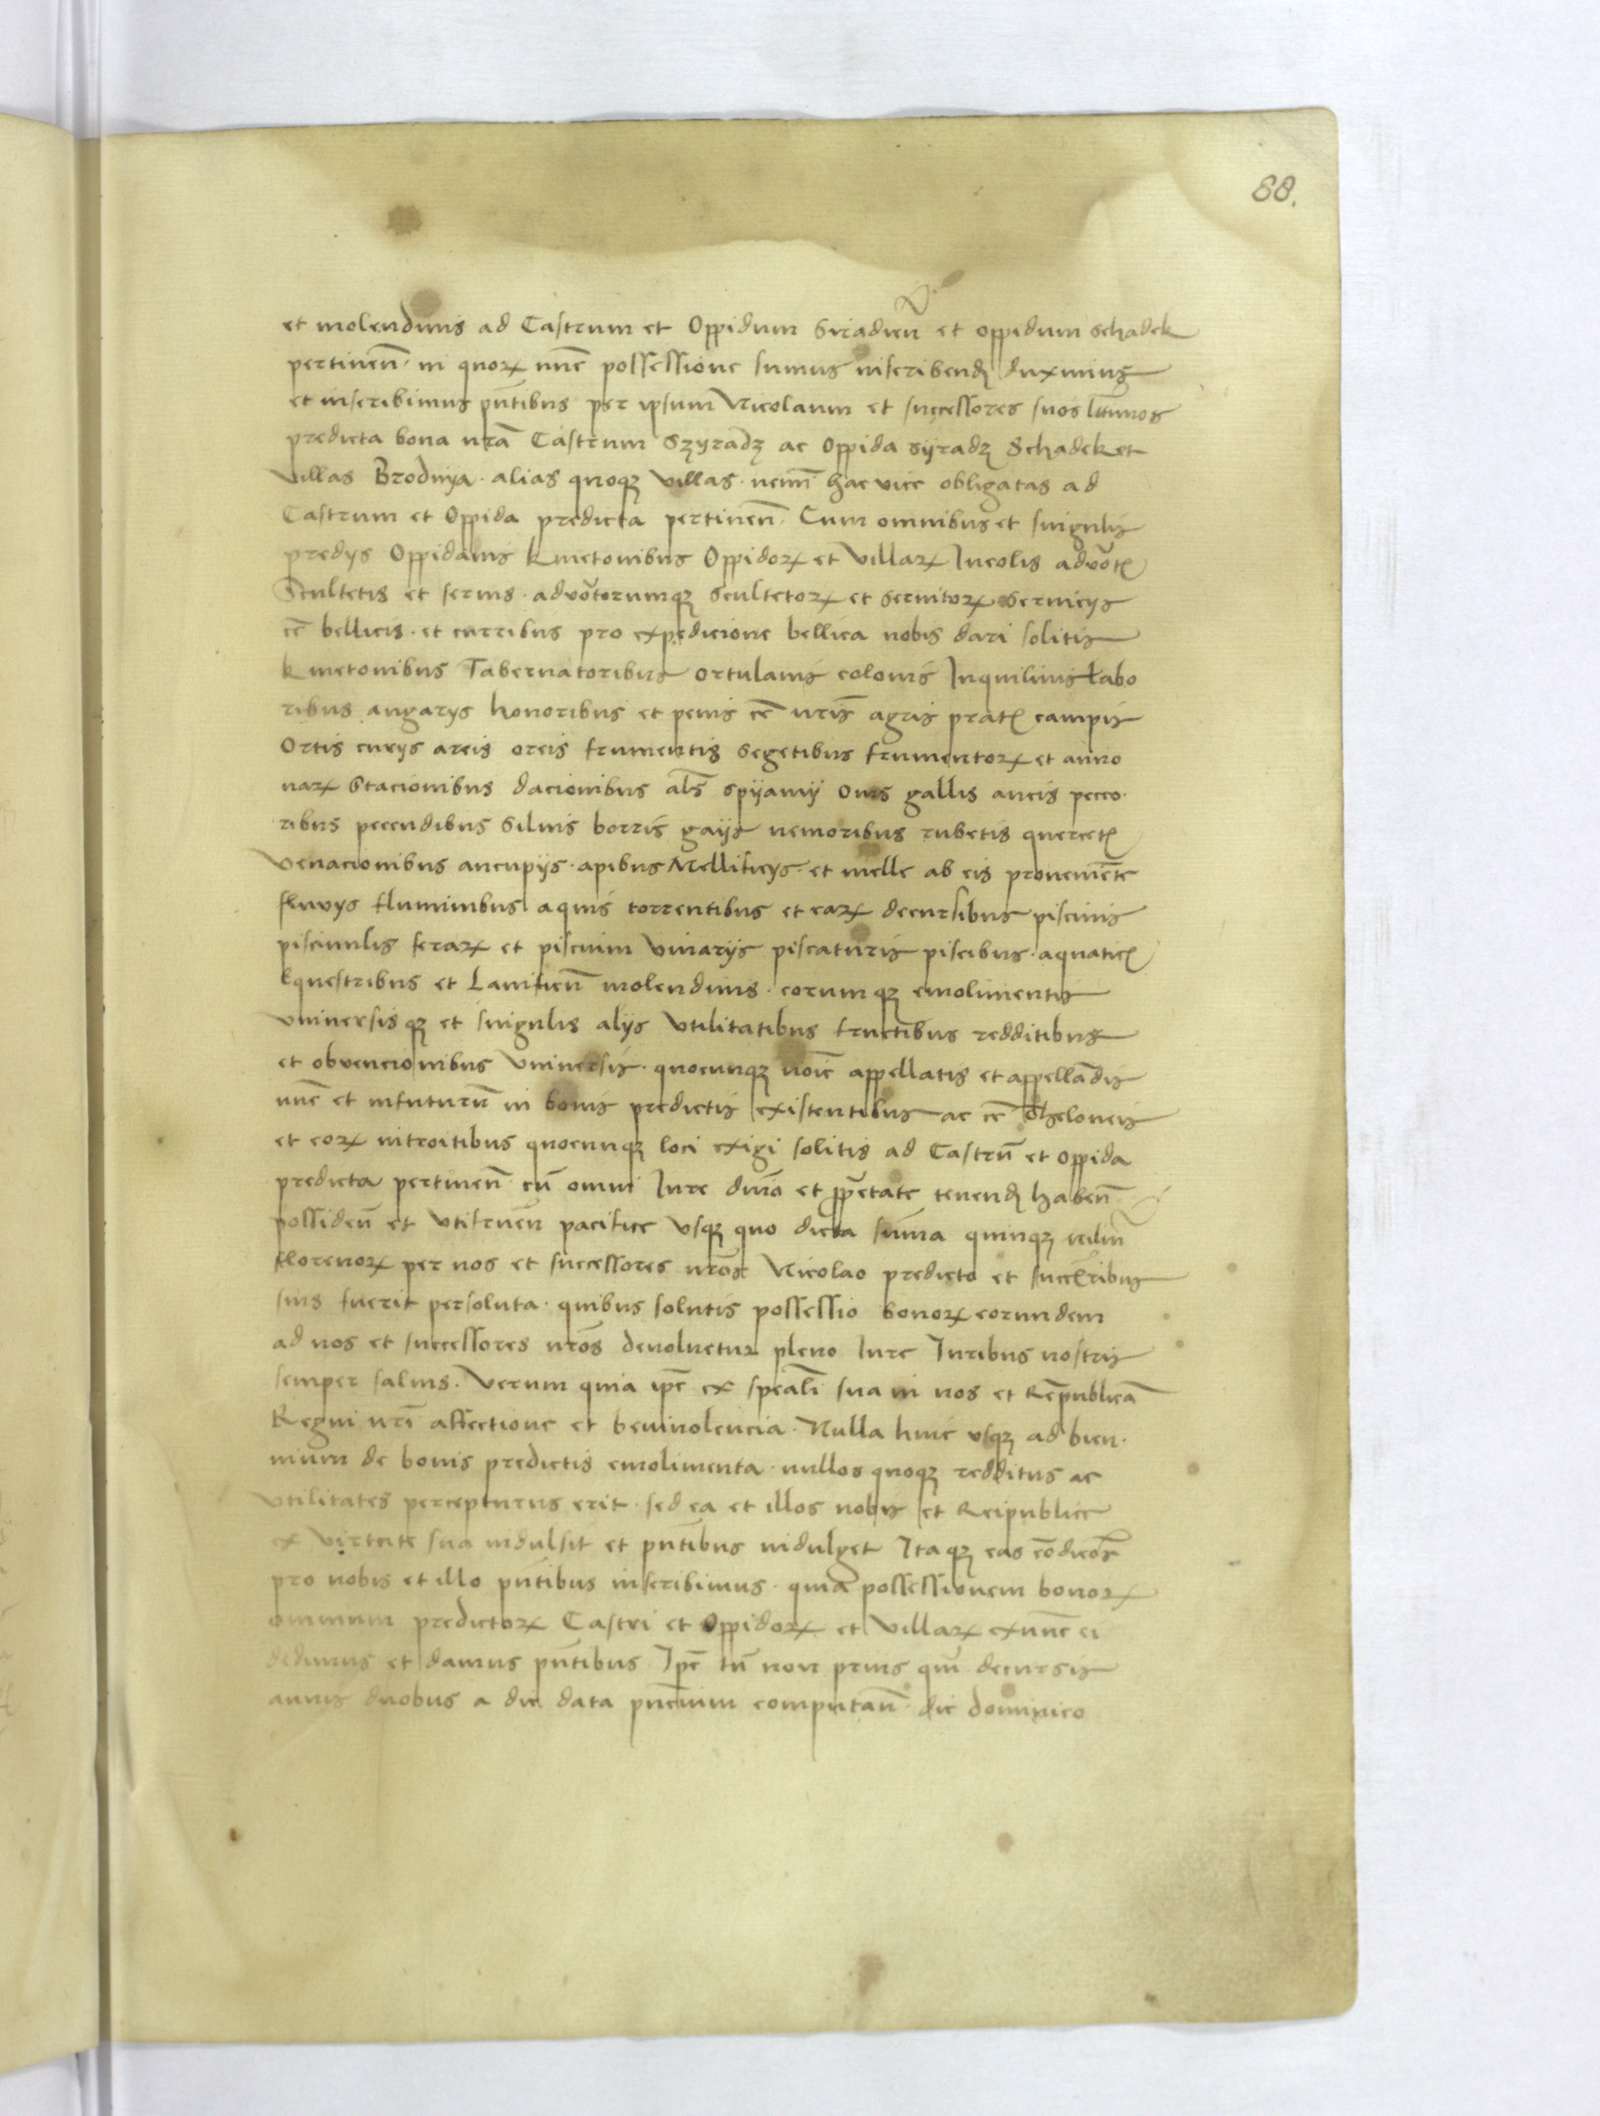 88.
et molendinis ad Castrum et Oppidum Siradieñ et oppidum Schadek
pertineñ. in quorꝝ nūc possessione sumus inscribendꝫ duximus
et inscribimus pñtibus per ipsum Nicolaum et successores suos ltimos
predicta bona nr̃a Castrum Szyradz ac Oppida Syradz Schadek et
villas Brodnya. alias quoqꝫ villas nemi hac vice obligatas ad
Castrum et Oppida predicta pertineñ. Cum omnibus et singulis
predys Oppidanis kmetonibus Oppidorꝝ et villarꝝ Incolis advotꝭ
Scultetis et servis. advotorumqꝫ scultetorꝝ et servitorꝝ servicys
et̃ bellicis. et curribus pro expedicione bellica nobis dari solitis
kmetonibus Tabernatoribus ortulanis colonis Inquilinis Labo
ribus angarys honoribus et penis et̃ nr̃is agris pratꝭ campis
Ortis curys areis oreis frumentis segetibus frumentorꝝ et anno
narꝝ Stacionibus dacionibus als̃ spyamy ovis gallis aucis pecco.
ribus pecudibus Silvis borris gays nemoribus rubetis quercetꝭ
venacionibus aucupys. apibus Mellificys. et melle ab eis proveniẽte
fluvys fluminibus aquis torrentibus et earꝝ decursibus piscinis
pisciculis ferarꝝ et piscium vivarys piscaturis piscibus. aquaticꝭ
Equestribus et Lanificũ molendinis. eorumqꝫ emolimentis
universisqꝫ et singulis alys utilitatibus fructibus redditibus
et obvencionibus universis. quocunqꝫ noĩe appellatis et appellãdis
nũc et infuturũ in bonis predictis existentibus ac et̃ Theloneis
et eorꝝ introitibus quocunqꝫ loci exigi solitis ad Castrũ et oppida
predicta pertineñ cũ omni Iure dñio et pp̃etate tenendꝫ habeñ
possideñ et utifrueñ pacifice usqꝫ quo dicta sum̃a quinqꝫ miliũ
florenorꝝ per nos et successores nr̃os Nicolao predicto et succr̃ibus
suis fuerit persoluta. quibus solutis possessio bonorꝝ eorundem
ad nos et successores nr̃os devolvetur pleno Iure Iuribus nostris
semper salvis. Verum quia ip̃e ex sp̃eali sua in nos et Rẽpublicã
Regni nr̃i affectione et benivolencia. Nulla hinc usqꝫ ad bien.
nium de bonis predictis emolimenta. nullos quoqꝫ redditus ac
utilitates percepturus erit. sed ea et illos nobis et Reipublice
ex virtute sua indulsit et pñtibus indulget Itaqꝫ eas cõdicõs
pro nobis et illo pñtibus inscribimus. quia possessionem bonorꝝ
omnium predictorꝝ Castri et Oppidorꝝ et villarꝝ exnunc ei
dedimus et damus pñtibus Ip̃e tñ non prius qm̃ decursis
annis duobus a die data pñcium computañ. die dominico